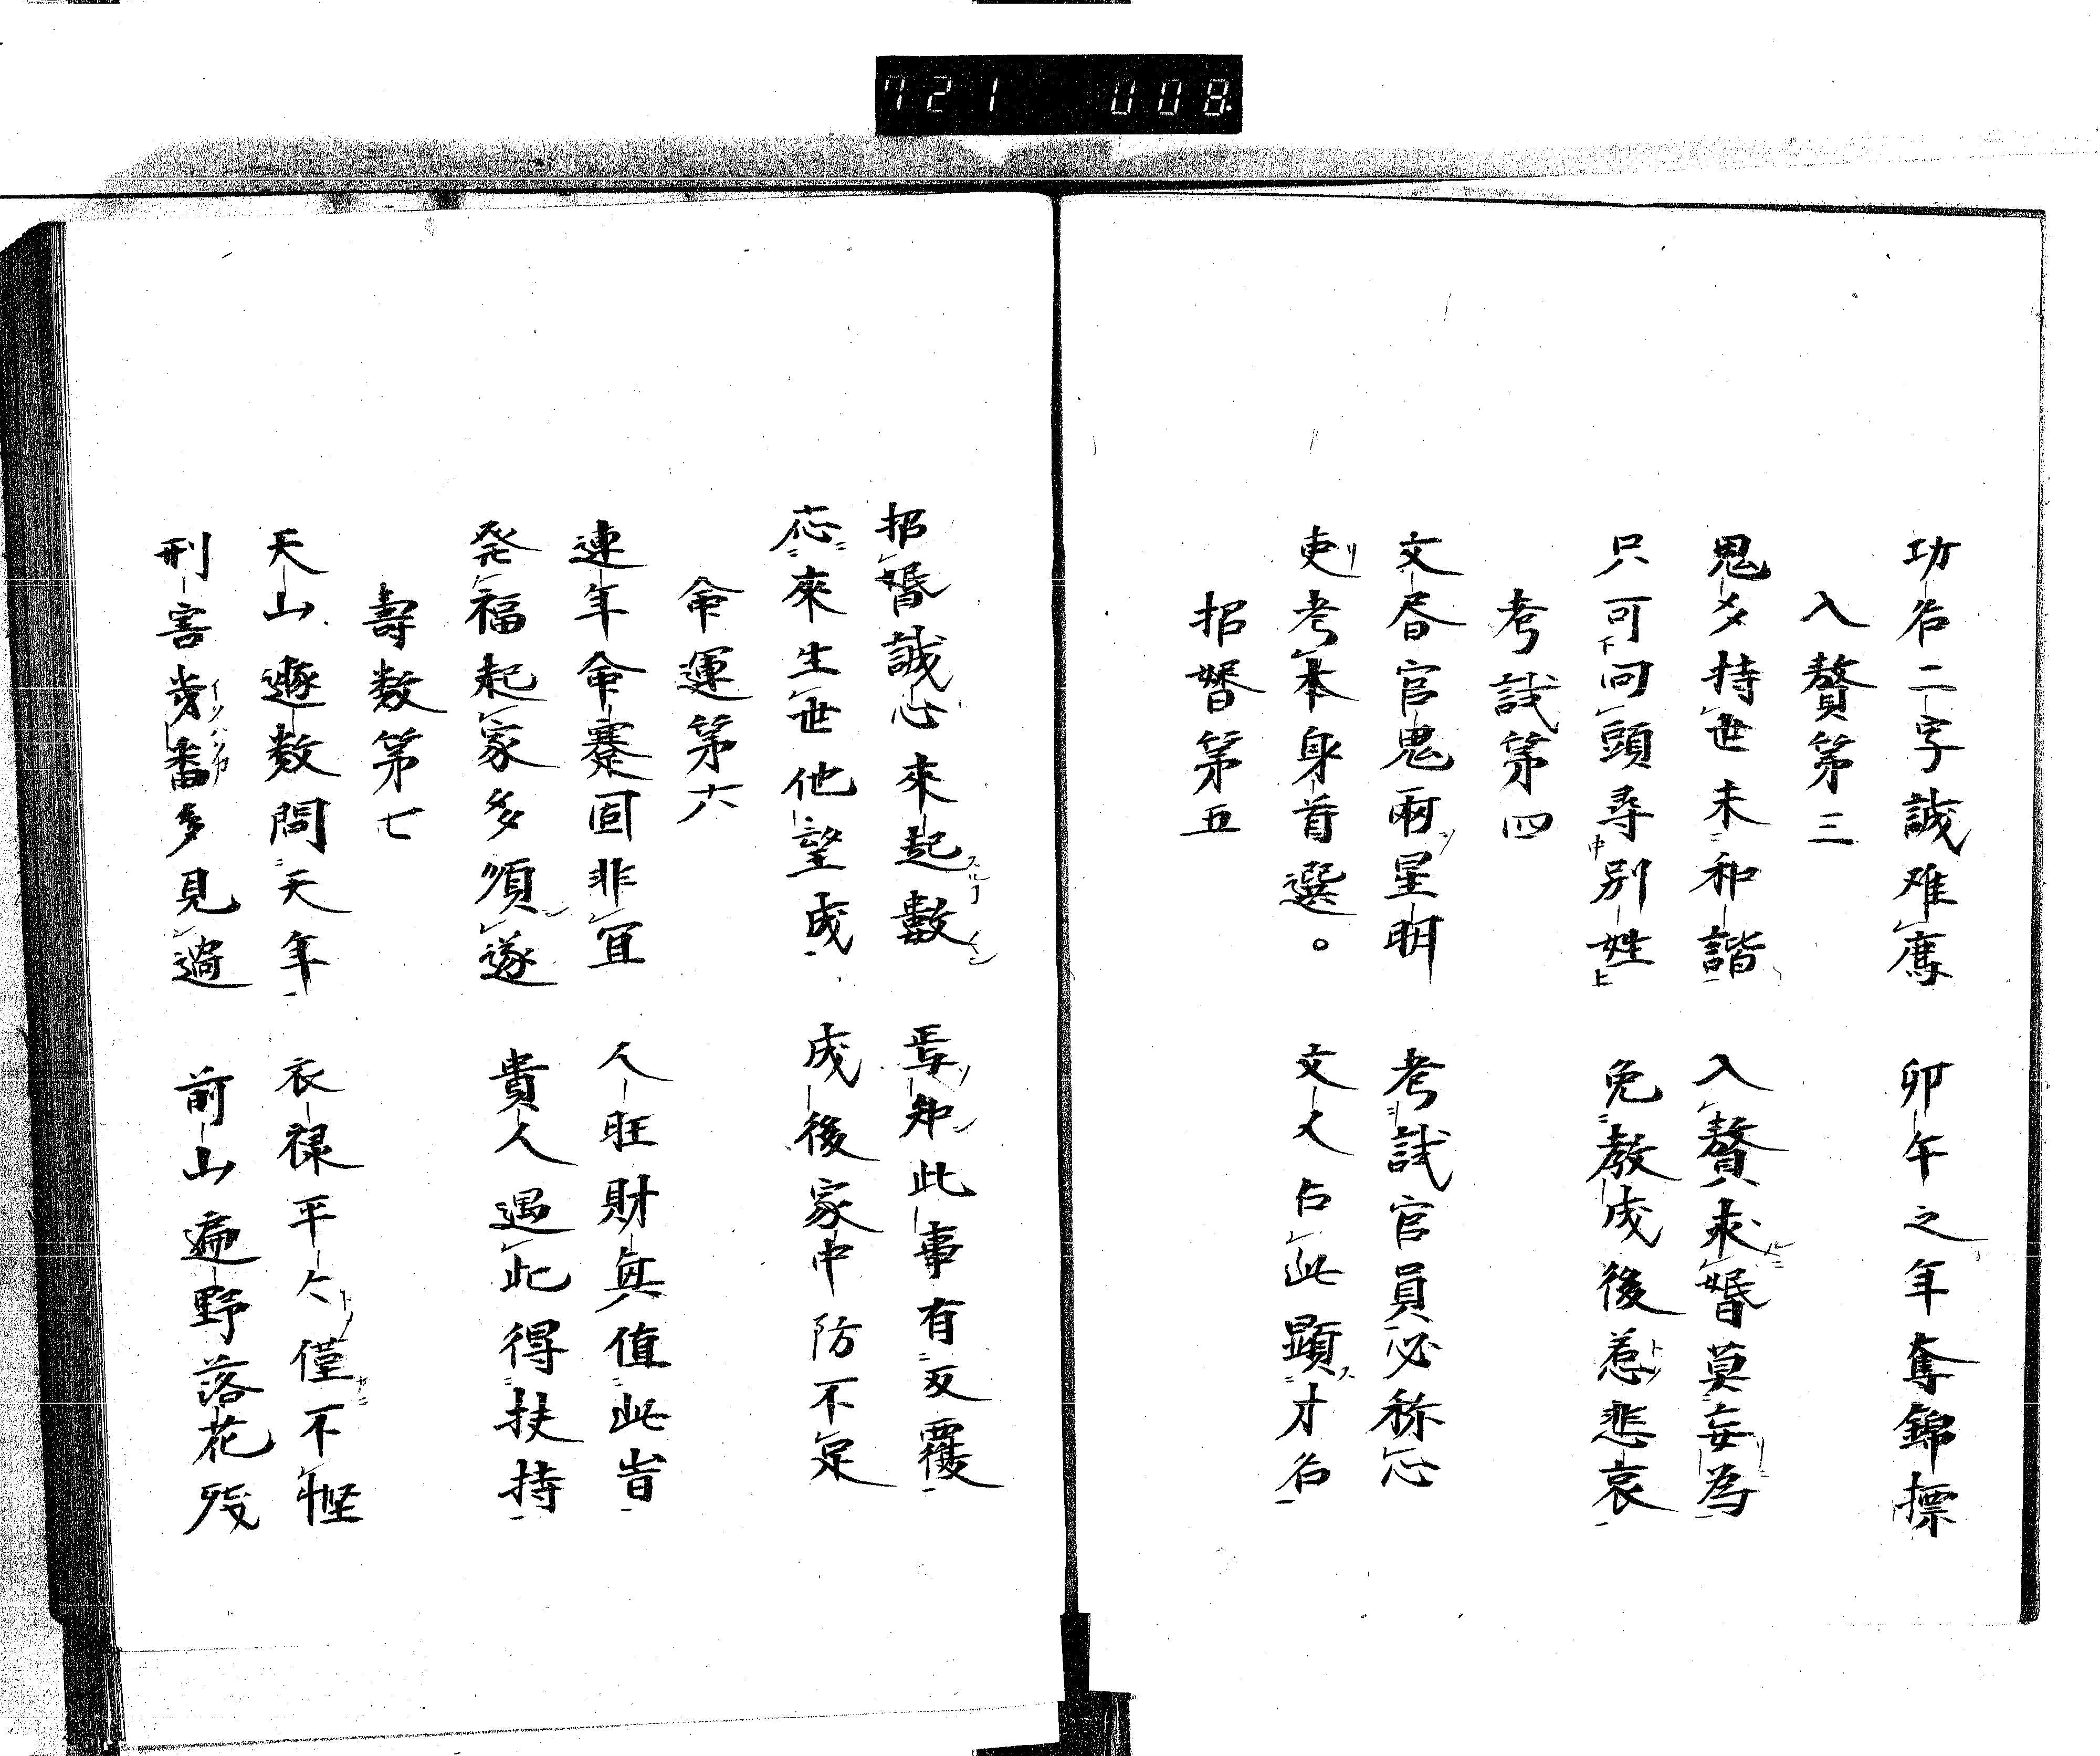 721 008
功名二字誠难鷹 卯午之年奪錦標
入贅第三
鬼爻持世未和諧 入贅求婚莫妄為
只可回頭尋別姓 免教成後惹悲哀
考試第四
文昏官鬼兩星明 考試官員必称心
吏考本身首選。 文人占此顕才名
招婚第五
招婚誠心來起數 焉知此事有反覆
応來生世他望成 成後家中防不足
命運第六
連年命蹇固非宜 人旺財無值此旹
発福起家多順遂 貴人遇此得扶持
壽数第七
天山遯数問天年 衣禄平々僅不慳
刑害幾番多見過 前山遍野落花残